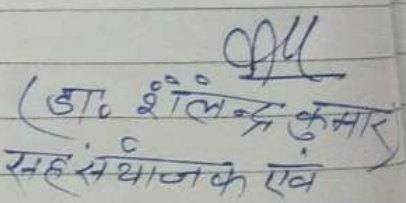 (डा. शैलेन्द्र कुमार)
सह संयोजक एवं